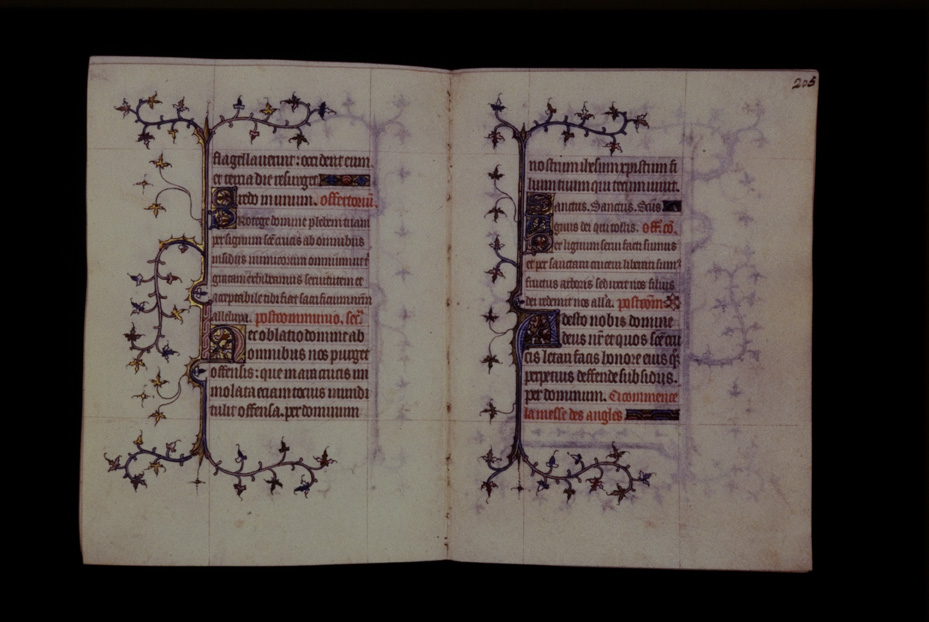 flagellauerint: occident eum.
et tercia die resurget
Credo in unum. offertoriũ.
Protege domine plebem tuam
per signum scẽ crucis ab omnibus
insidiis inimicorum omnium ut t̃
gratam exhibeamus seruitutem et
acceptabile tibi fiat sacrificium nr̃m
alleluya. postcommunio. secr̃.
Hec oblatio domine ab
omnibus nos purget
offensis: que in ara crucis im
molata eciam tocius mundi
tulit offensa. per dominum
205
nostrum ihesum xpistum fi
lium tuum qui tecum uiuit.
Sanctus. Sanctus. Scũs
Agnus dei qui tollis. off. cõ.
Per lignum serui facti sumus
et per sanctam crucem liberati sum⁹
fructus arboris seduxit nos filius
dei redemit nos all'a. postcõm
Adesto nobis domine
deus nr̃ et quos scẽ cru
cis letari facis honore eius q̃
perpetuis deffende subsidiis.
per dominum. Ci commence
la messe des angles